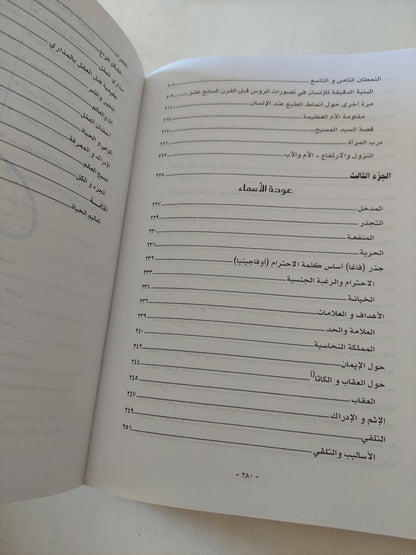 النمطان الثامن و التاسع ٢٠٨
البنية الدقيقة للإنسان في تصورات الروس قبل القرن السابع عشر ٢٠٩
مرة أخرى حول أنماط الطبع عند الإنسان ٢١٦
مقاومة الأم العظيمة
قصة السيد المسيح
درب المرأة
النزول والارتفاع – الأم والأب
الجزء الثالث ٢٣٥
عودة الأسماء
المدخل ٢٢٧
التجذر ٢٢٩
المنفعة ٢٣٠
الحرية ٢٣١
جذر (فاغا) أساس كلمة الاحترام (أوفاجينيا) ٢٣٢
الاحترام والرغبة الجنسية ٢٣٣
الخيانة ٢٣٤
الأهداف و العلامات ٢٣٦
العلامة والحد ٢٣٩
المملكة النحاسية ٢٤٠
حول الإيمان ٢٤٢
حول العقاب و الكاتا() ٢٤٤
العقاب ٢٤٥
الإثم و الإدراك ٢٤٧
التلقي ٢٤٩
الأساليب و التلقي ٢٥١
- ٢٨٠ -
العقل
أنا والعالم
الوعي و الحياة
الإدراك و المعرفة
نسيج العالم
الجزء و الكل
تعاليم الحياة